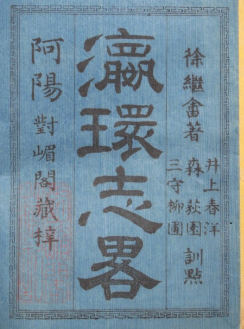 徐繼畬著
井上春洋
森荻園
三守柳圃
訓點
瀛環志畧
阿陽
對嵋閣藏梓